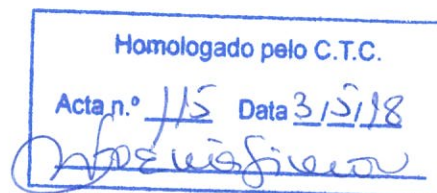 Homologado pelo C.T.C.
Acta n.º 115 Data 3/5/18